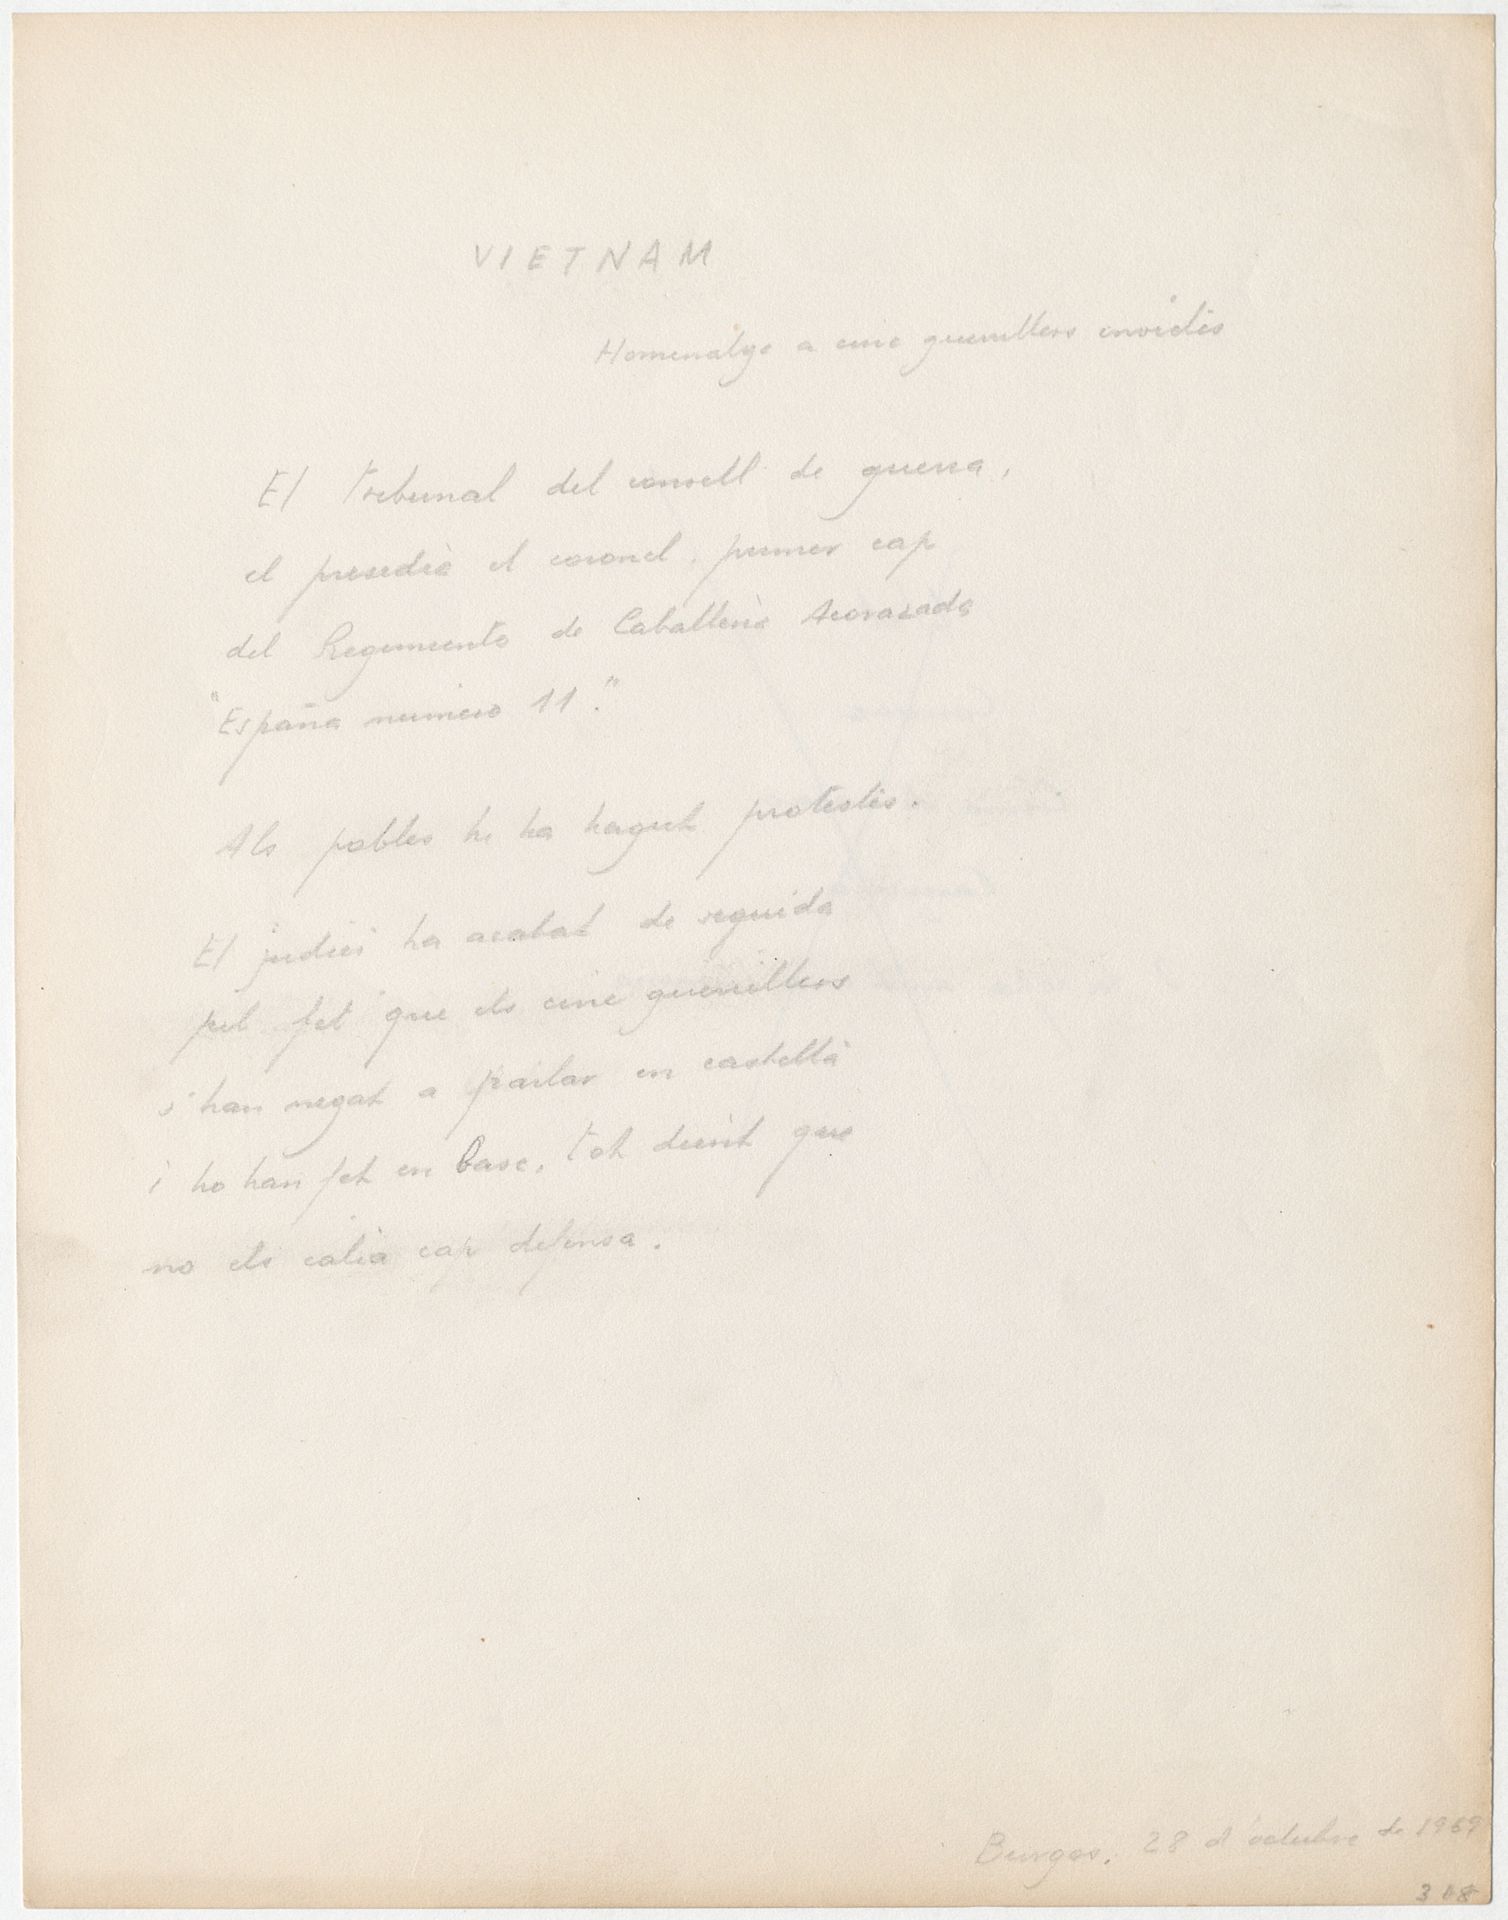 VIETNAM
Homenatge a cinc guerrillers
El tribunal del consell de guerra,
el presedia el coronel, primer cap
del Regimiento de Caballeria Acorazada
"España número 11."
Als pobles hi ha hagut protestes.
El judici ha acabat de seguida
pel fet que els cinc guerrillers
s'han negat a parlar en castellà
i ho han fet en basc, tot dient que
no els calia cap defensa.
Burgos, 28 d'octubre de 1969